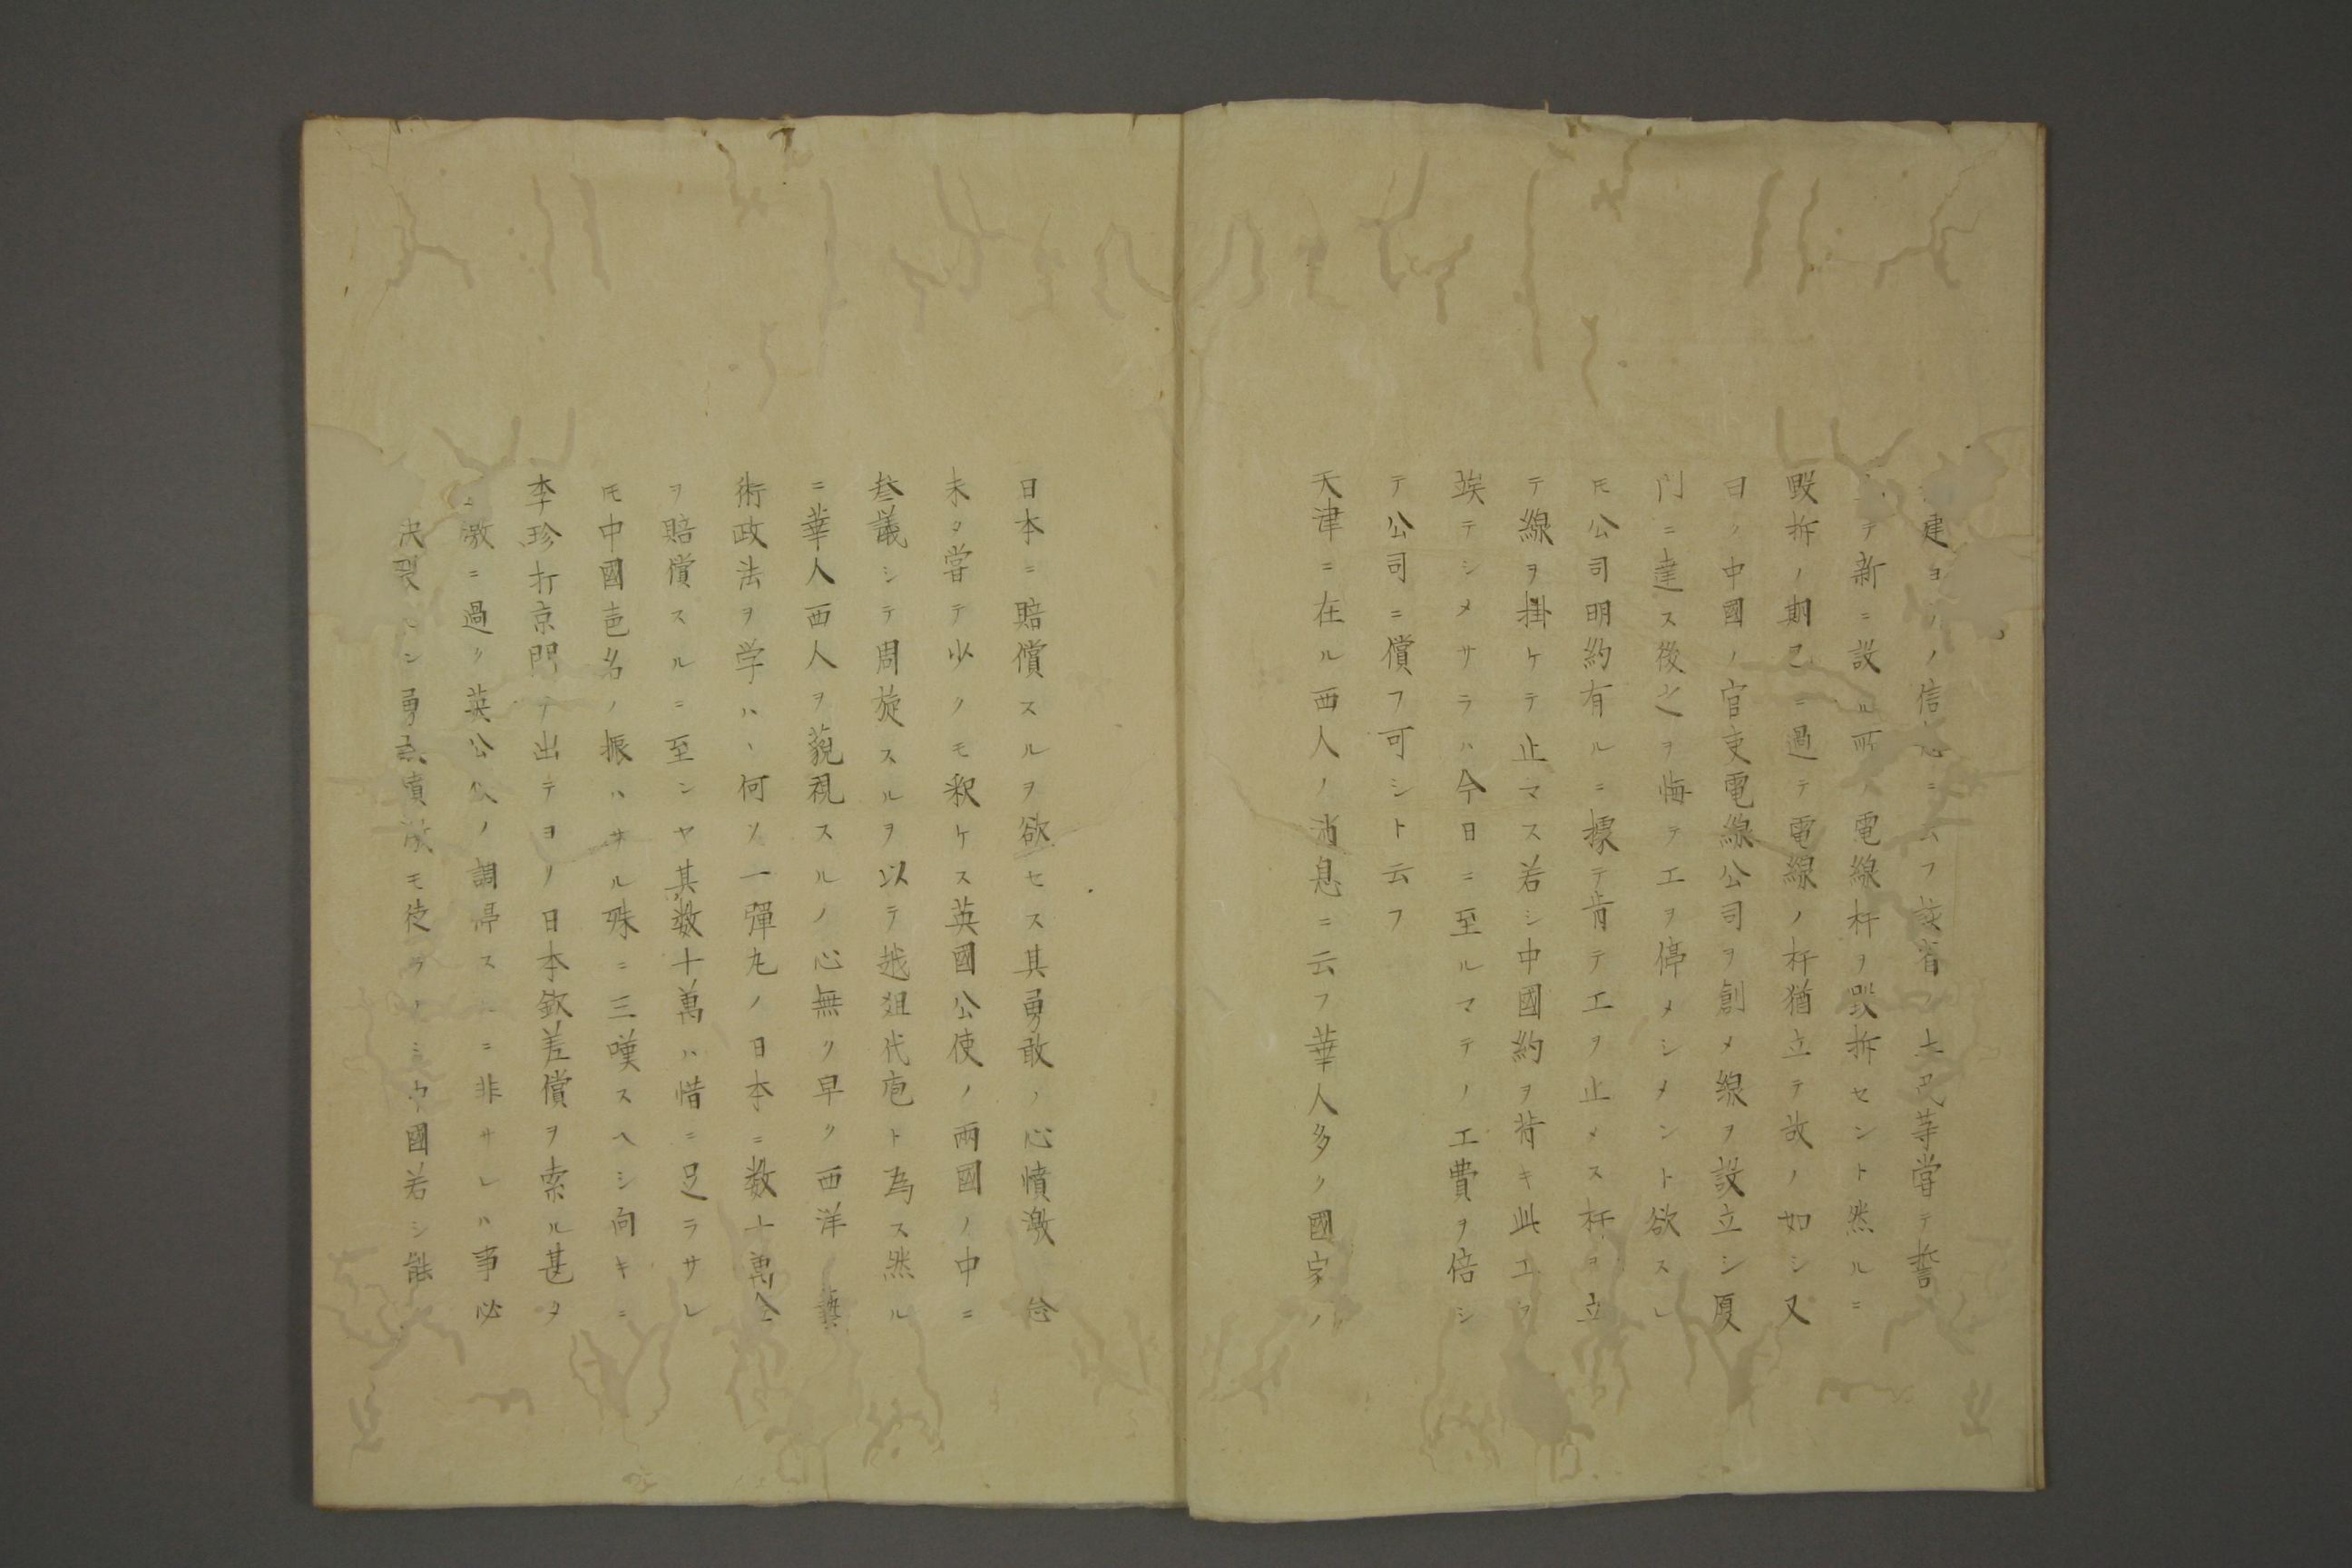 建ヨリノ信息ニ云フ該省ノ土巴等嘗テ誓
テ新ニ設ル所ノ電線杆ヲ毀拆セント然ルニ
毀拆ノ期已ニ過テ電線ノ杆猶立テ故ノ如シ又
曰ク中國ノ官吏電線公司ヲ創メ線ヲ設立シ厦
門ニ達ス後之ヲ悔テ工ヲ停メシメント欲スレ
𪜈公司明約有ルニ據テ肯テ工ヲ止メス杆ヲ立
テ線ヲ掛ケテ止マス若シ中國約ヲ背キ此工ヲ
竢テシメサラハ今日ニ至ルマテノ工費ヲ倍シ
テ公司ニ償フ可シト云フ
天津ニ在ル西人ノ消息ニ云フ華人多ク國家ノ
日本ニ賠償スルヲ欲セス其勇敢ノ心憤激
未タ嘗テ少クモ釈ケス英國公使ノ兩國ノ中ニ
叅議シテ周旋スルヲ以テ越俎代庖ト為ス然ル
ニ華人西人ヲ藐視スルノ心無ク早ク西洋ノ藝
術政法ヲ学ハヽ何ソ一彈丸ノ日本ニ数十萬金
ヲ賠償スルニ至ンヤ其数十萬ハ惜ニ足ラサレ
𪜈中國声名ノ振ハサル殊ニ三嘆スヘシ向キニ
李珍打京門ヲ出テヨリ日本欽差償ヲ索ル甚タ
激ニ過ク英公使ノ調停スルニ非サレハ事必
決裂セン勇ヲ モ徒ラノミ中國若シ能